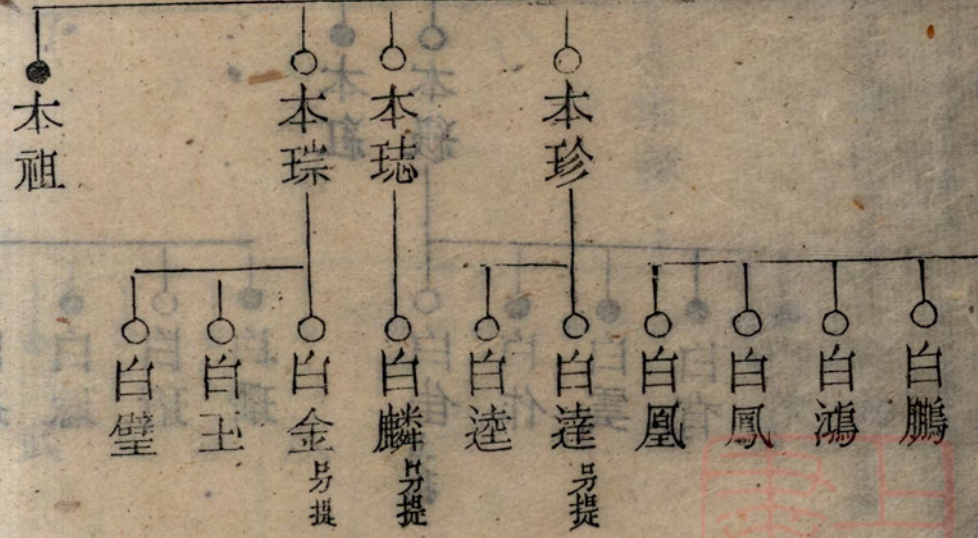 本珍
本誌
本琮
本祖
白鵬
白鴻
白鳳
白凰
白達 另提
白逵
白麟 另提
白金 另提
白玉
白璧